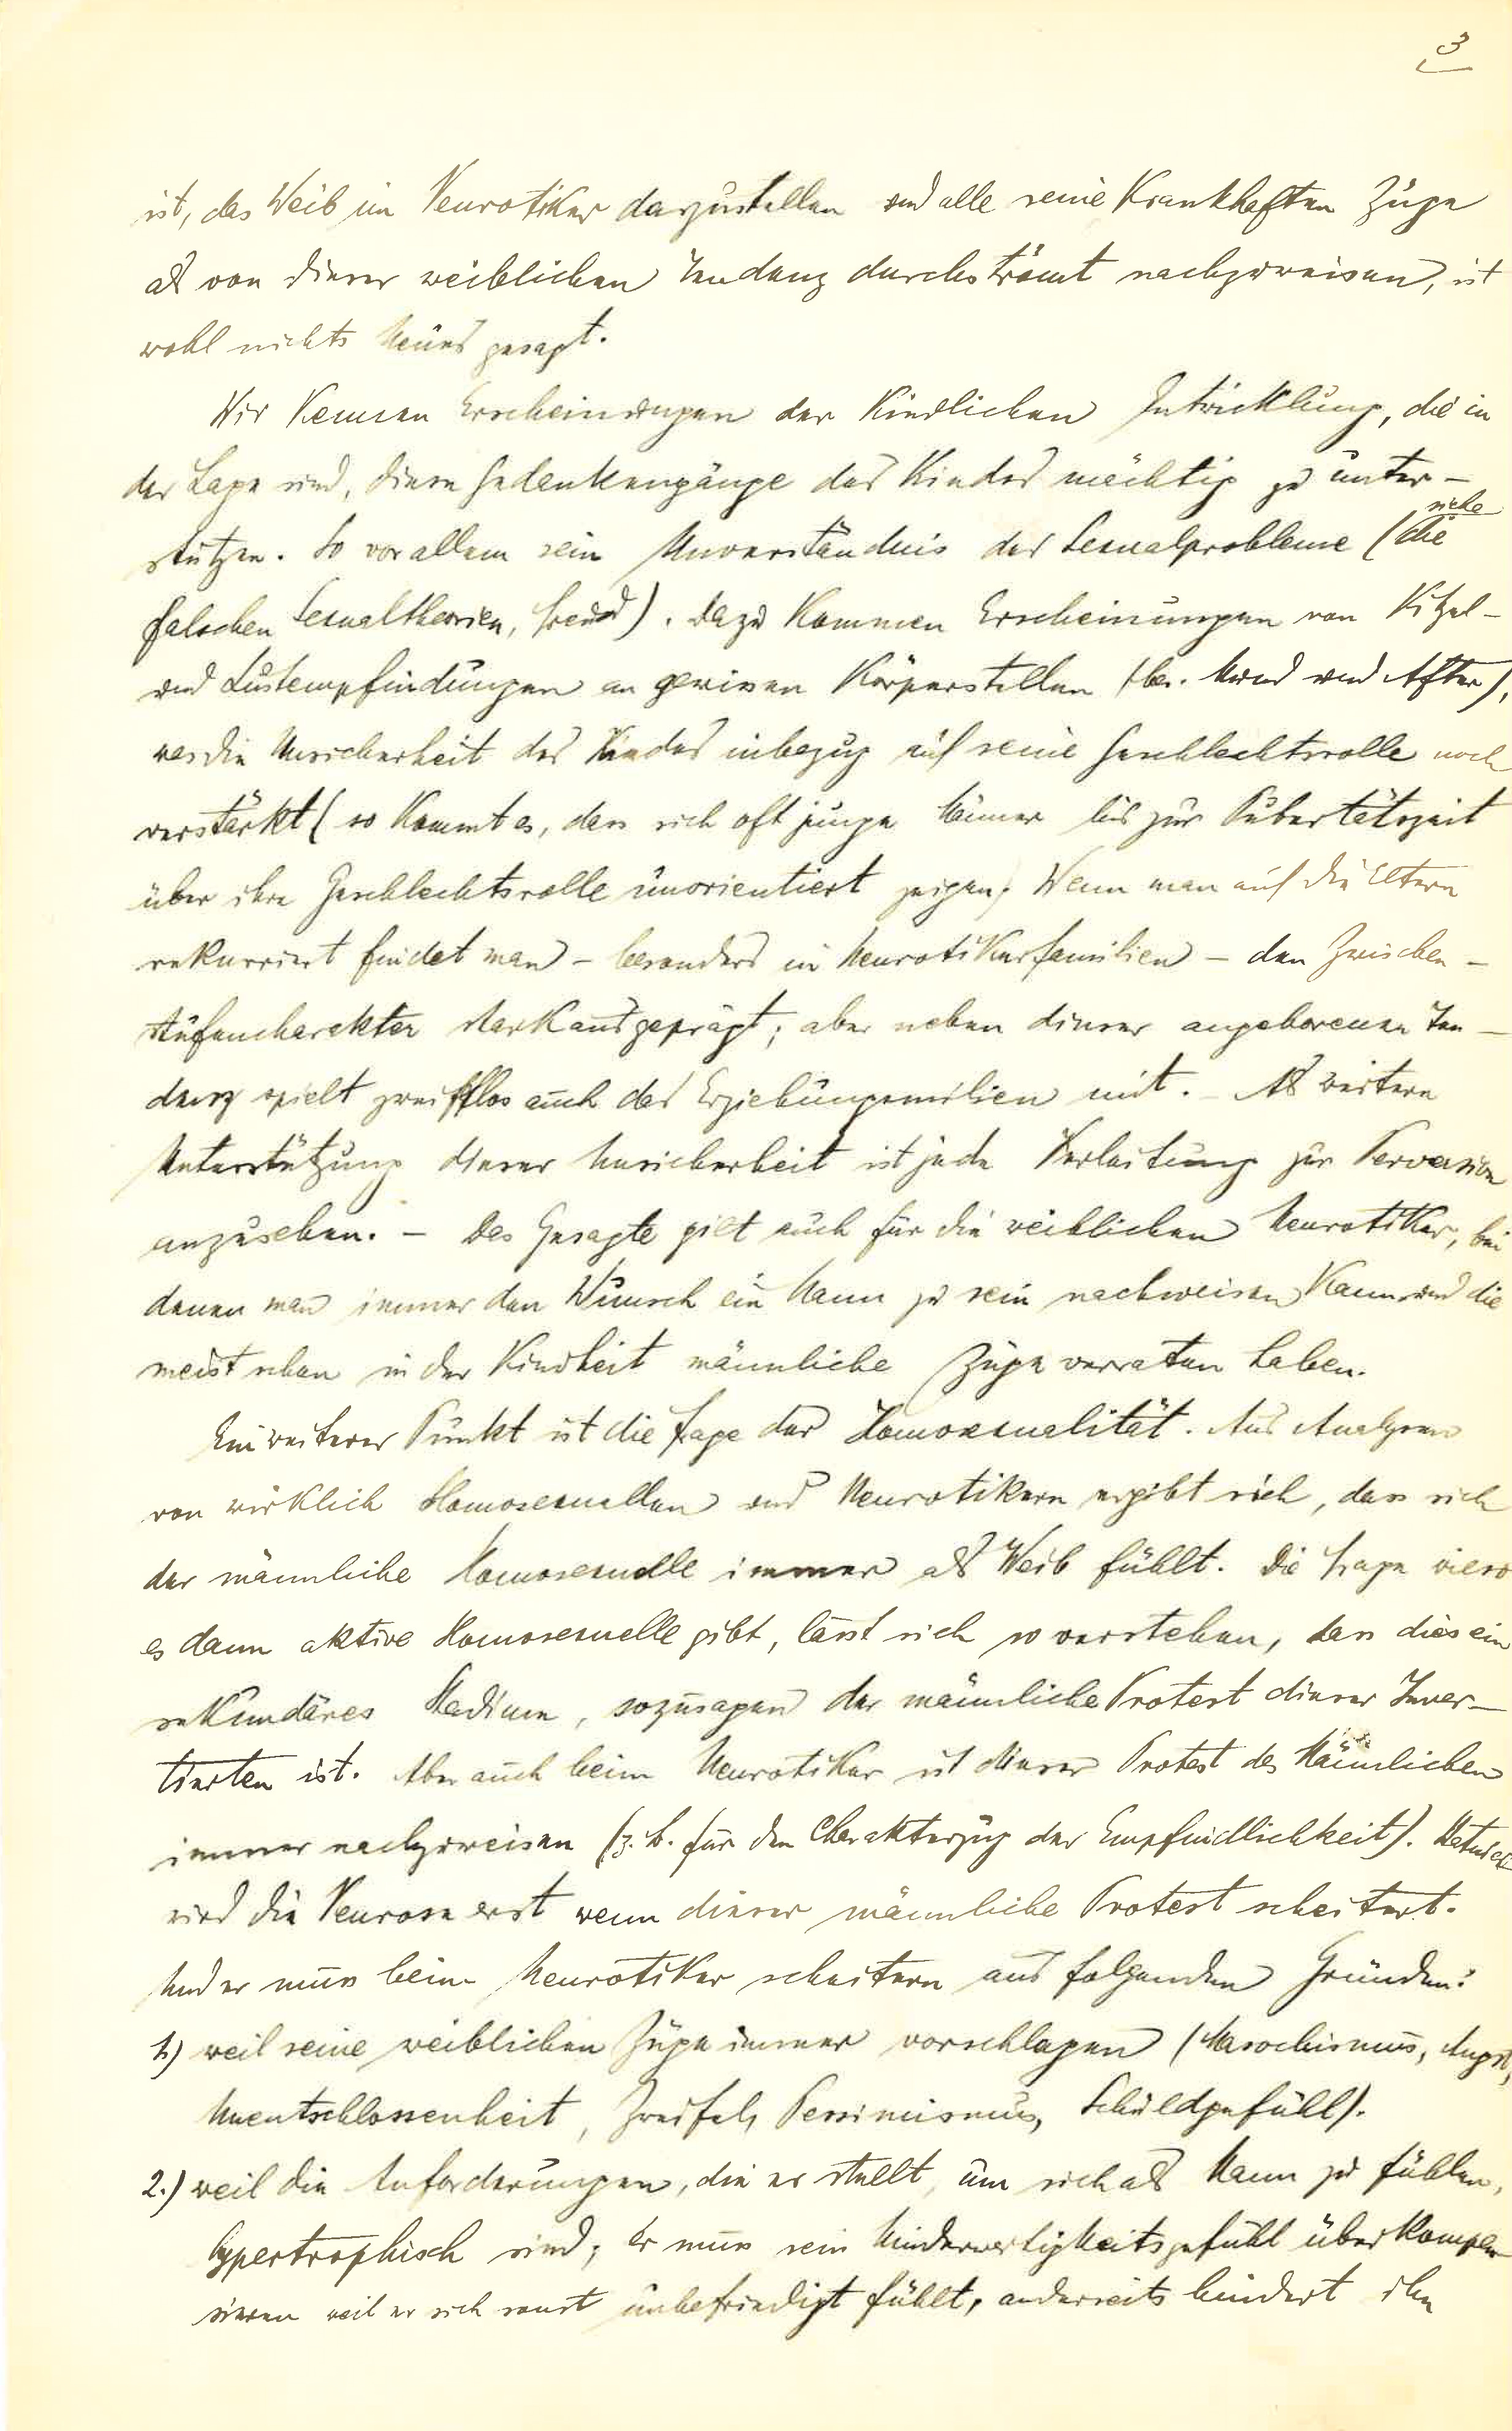 3
ist, das Weib im Neurotiker darzustellen und alle seine krankhaften Züge
als von dieser weiblichen Tendenz durchströmt nachzuweisen, ist
wohl nichts Neues gesagt.
Wir kennen Erscheinungen der kindlichen Entwicklung, die in
der Lage sind, diese Gedankengänge des Kindes mächtig zu unter-
stützen. So vor allem sein Unverständnis der Sexualprobleme (siehe die
falschen Sexualtheorien, Freud). Dazu kommen Erscheinungen von Kitzel-
und Lustempfindungen an gewissen Körperstellen (bes. Mund und After),
was die Unsicherheit des Kindes inbezug auf seine Geschlechtsrolle noch
verstärkt (so kommt es, dass sich oft junge Männer bis zur Pubertätszeit
über ihre Geschlechtsrolle unorientiert zeigen). Wenn man auf die Eltern
rekurriert findet man – besonders in Neurotikerfamilien – den Zwischen-
stufencharakter stark ausgeprägt; aber neben dieser angeborenen Ten-
denz spielt zweifellos auch das Erziehungsmilieu mit. – Als weitere
Unterstützung dieser Unsicherheit ist jede Verleitung zur Perversion
anzusehen. – Das Gesagte gilt auch für die weiblichen Neurotiker, bei
denen man immer den Wunsch ein Mann zu sein nachweisen kann und die
meist schon in der Kindheit männliche Züge verraten haben.
Ein weiterer Punkt ist die Frage der Homosexualität. Aus Analysen
von wirklich Homosexuellen und Neurotikern ergibt sich, dass sich
der männliche Homosexuelle immer als Weib fühlt. Die Frage wieso
es dann aktive Homosexuelle gibt, lässt sich so verstehen, dass dies ein
sekundäres Stadium, sozusagen der männliche Protest dieser Inver-
tierten ist. Aber auch beim Neurotiker ist dieser Protest des Männlichen
immer nachzuweisen (z.B. für den Charakterzug der Empfindlichkeit). Manifest
wird die Neurose erst wenn dieser männliche Protest scheitert.
Und er muss beim Neurotiker scheitern aus folgenden Gründen:
1.) weil seine weiblichen Züge immer vorschlagen (Masochismus, Angst,
Unentschlossenheit, Zweifel, Pessimismus, Schuldgefühl).
2.) weil die Anforderungen, die er stellt, um sich als Mann zu fühlen,
hypertrophisch sind; er muss sein Minderwertigkeitsgefühl überkompen
sieren weil er sich sonst unbefriedigt fühlt, anderseits hindert ihn